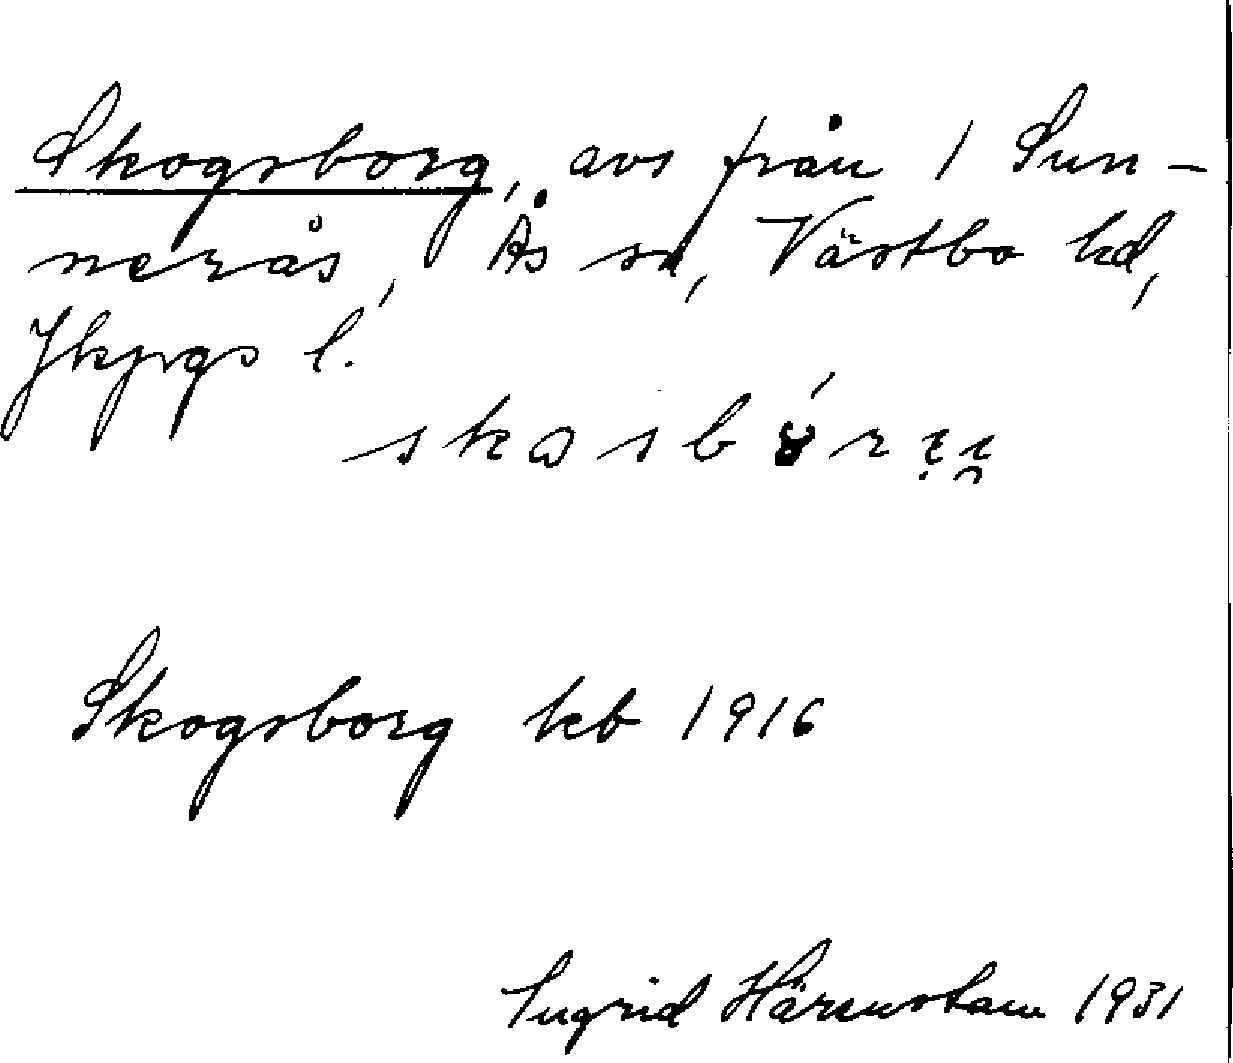 Skogsborg, avs från 1 Sun-
nerås, Ås sn, Västbo hd,
Jkpgs l.
Skogsborg kb 1916
Ingrid Härenstam 1931